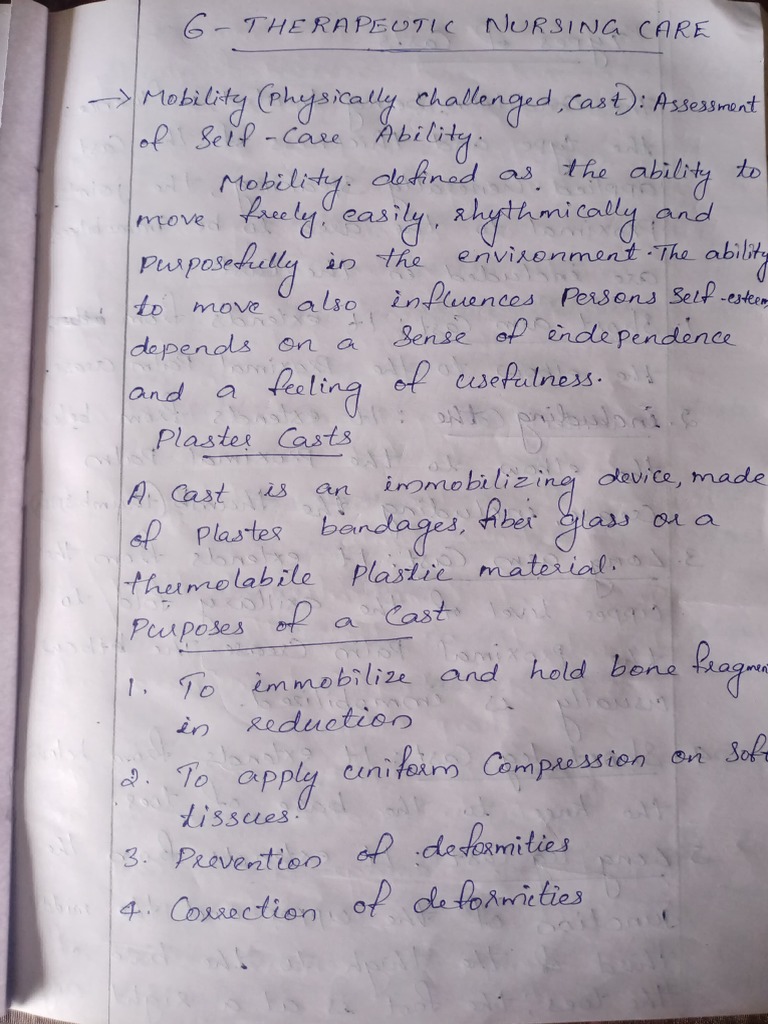 6 - THERAPEUTIC NURSING CARE
→ Mobility (physically challenged, cast): Assessment
of Self-Care Ability.
Mobility. defined as. the ability to
move freely, easily, rhythmically and
purposefully in the environment. The ability
to move also influences persons self-esteem
depends on a sense of independence
and a feeling of usefulness.
Plaster Casts
A cast is an immobilizing device, made
of plaster bandages, fiber glass or a
thermolabile plastic material.
Purposes of a cast
1. To immobilize and hold bone fragmen
in reduction
2. To apply uniform compression on soft
tissues.
3. Prevention of deformities
4. Correction of deformities